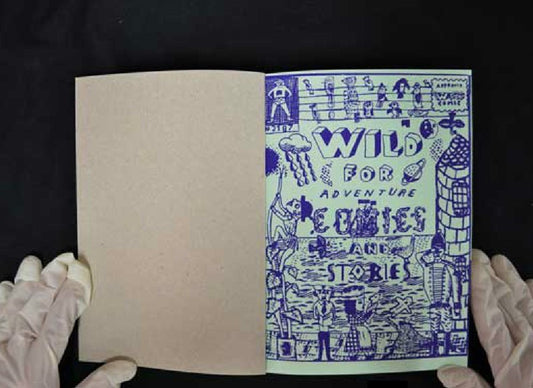 WILD
FOR
ADVENTURE
COMICS
AND
STORIES